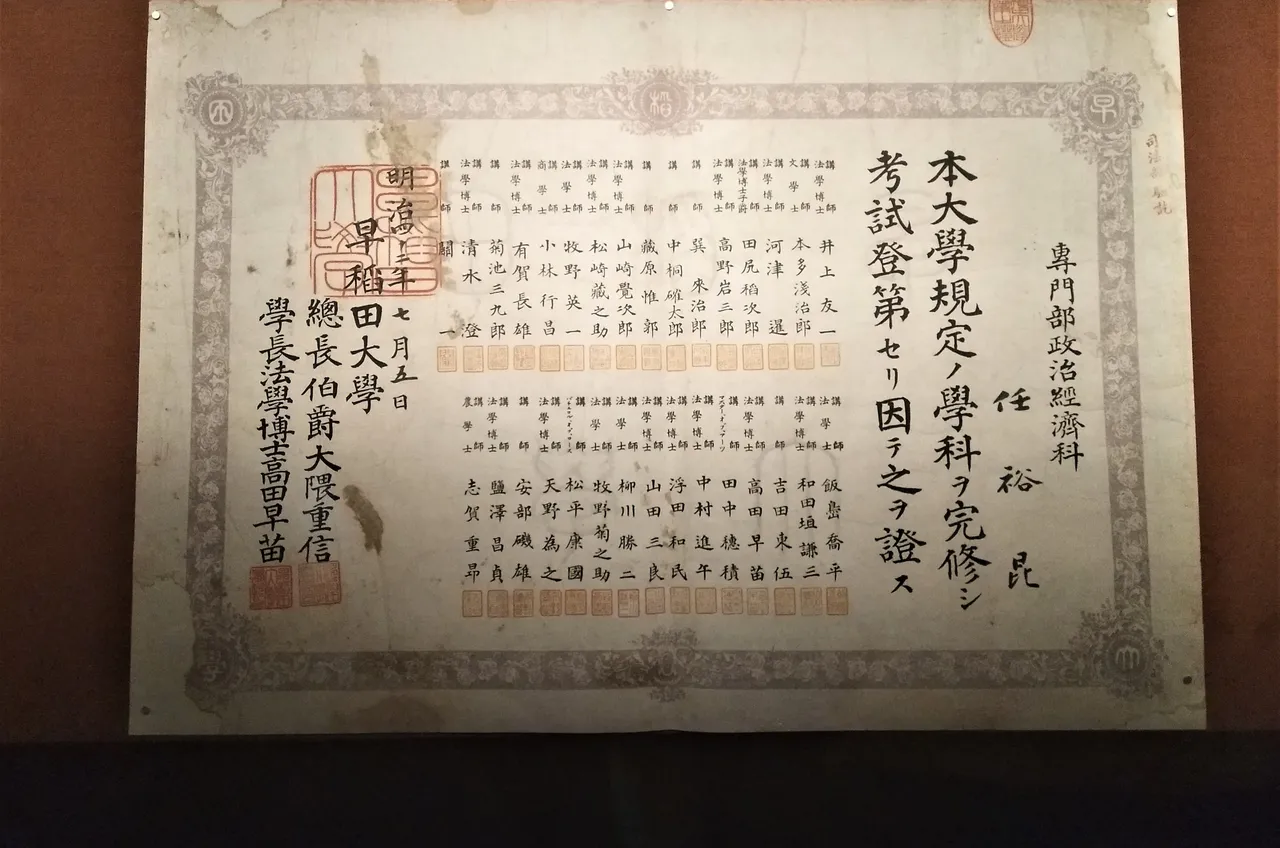 早
稻
田
專門部政治經濟科
任裕昆
本大學規定ノ學科ヲ完修シ
考試登第セリ因テ之ヲ證ス
講師法學博士 井上友一
講師文學士 本多淺治郎
講師法學博士 河津暹
講師法學博士子爵 田尻稻次郎
講師法學博士 高野岩三郎
講師 巽來治郎
講師 中桐確太郎
講師 藏原惟郭
講師法學博士 山崎覺次郎
講師法學博士 松崎藏之助
講師法學士 牧野英一
講師商學士 小林行昌
講師法學博士 有賀長雄
講師 菊池三九郎
講師法學博士 清水澄
講師 關一
講師法學士 飯嶌喬平
講師法學博士 和田垣謙三
講師 吉田東伍
講師法學博士 高田早苗
講師 田中穗積
講師法學博士 中村進午
講師法學博士 浮田和民
講師法學博士 山田三良
講師法學士 柳川勝二
講師法學士 牧野菊之助
講師 松平康國
講師法學博士 天野為之
講師 安部磯雄
講師法學博士 鹽澤昌貞
講師農學士 志賀重昻
明治四十二年七月五日
早稻田大學
總長伯爵大隈重信
學長法學博士高田早苗
大
學